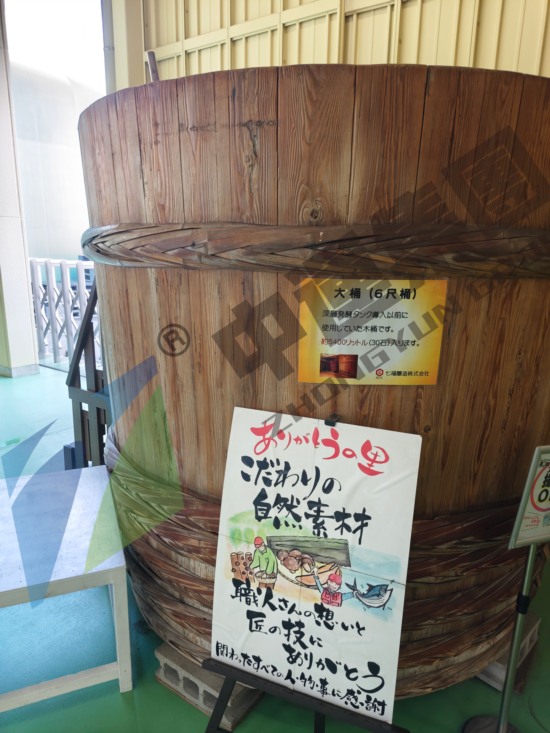 大桶（6尺桶）
深層発酵タンク導入以前に
使用していた木桶です。
約5400リットル（30石）入ります。
七福醸造株式会社
ありがとうの里
こだわりの
自然素材
職人さんの想いと
匠の技に
ありがとう
関わったすべての人・物・事に感謝
®
ZHONGYUN